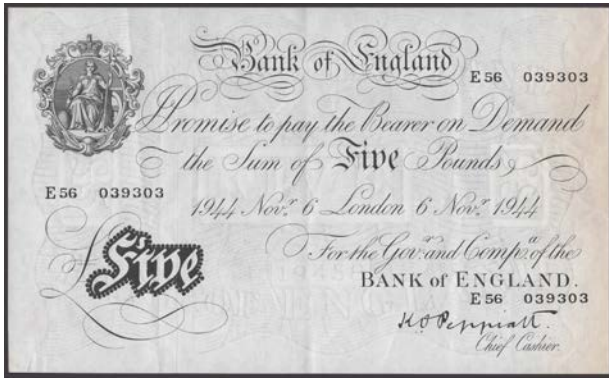 Bank of England
E 56 039303
I Promise to pay the Bearer on Demand
the Sum of Five Pounds
E 56 039303
1944 Novr 6 London 6 Novr 1944
For the Govr and Compa of the
Five
BANK of ENGLAND.
E 56 039303
K O Peppiatt.
Chief Cashier.